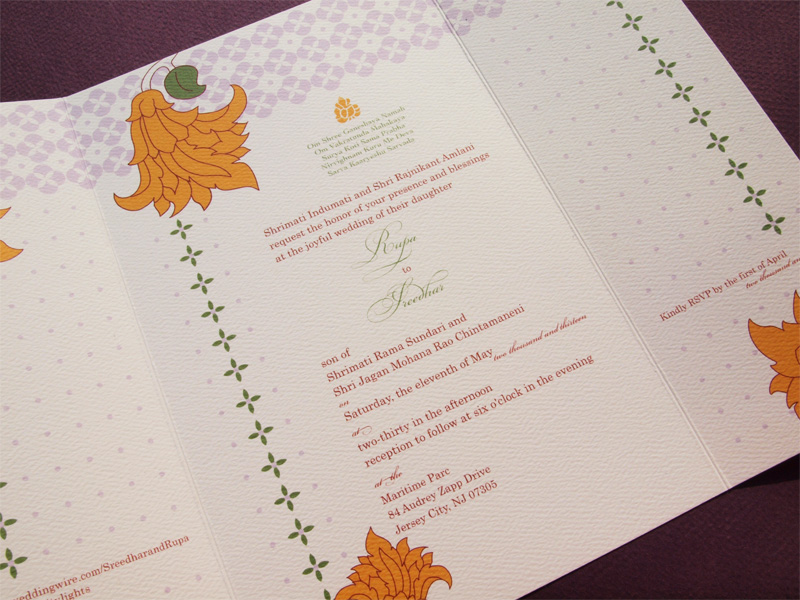 Om Shree Ganeshaya Namah
Om Vakratunda Mahakaya
Surya Koti Sama Prabha
Nirvighnam Kuru Me Deva
Sarva Karyeshu Sarvada
Shrimati Indumati and Shri Rajnikant Amlani
request the honor of your presence and blessings
at the joyful wedding of their daughter
Rupa
to
Sreedhar
son of
Shrimati Rama Sundari and
Shri Jagan Mohana Rao Chintamaneni
on
Saturday, the eleventh of May two thousand and thirteen
at
two-thirty in the afternoon
reception to follow at six o'clock in the evening
at the
Maritime Parc
84 Audrey Zapp Drive
Jersey City, NJ 07305
Kindly RSVP by the first of April
two thousand
eddingwire.com/SreedharandRupa